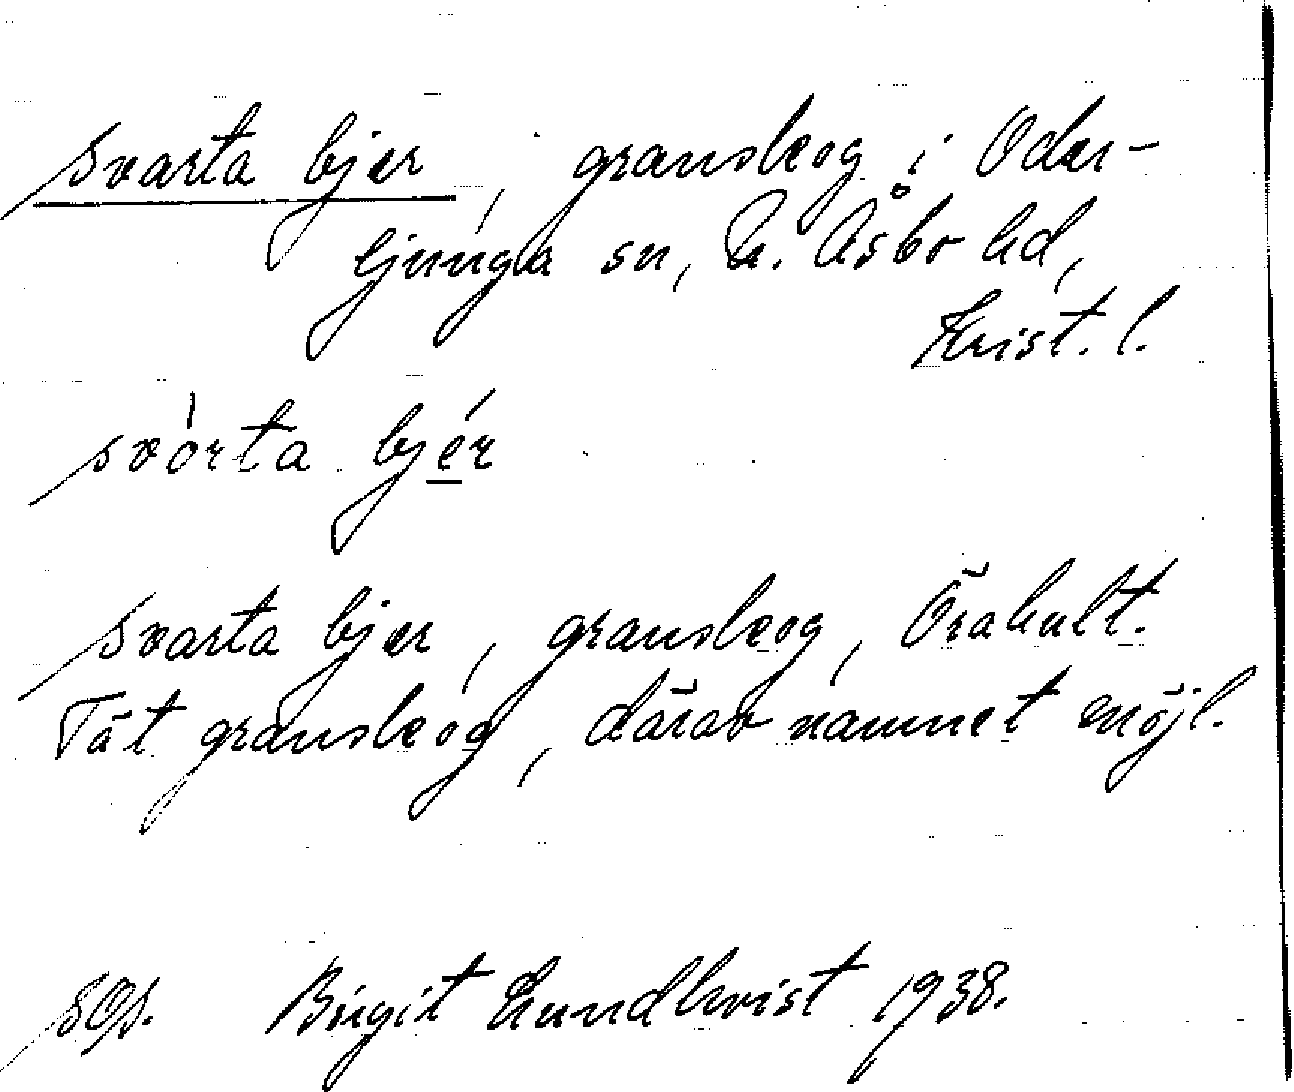 svarta bjer, granskog i Oder-
ljunga sn, N. Åsbo hd,
Krist. l.
svórta bjér
svarta bjer, granskog, Örahult.
Tät granskog, därav namnet möjl.
sgs. Birgit Lundkvist 1938.